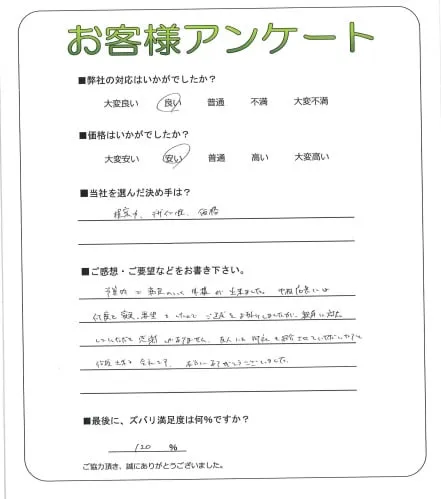 お客様アンケート
■弊社の対応はいかがでしたか？
大変良い 良い 普通 不満 大変不満
■価格はいかがでしたか？
大変安い 安い 普通 高い 大変高い
■当社を選んだ決め手は？
提案力、対応の 価格
■ご感想・ご要望などをお書き下さい。
予算内で 満足のいく 外構が 出来ました。
何度も 変更、要望 ご迷惑をお掛けしましたが、親身に対応
していただき 感謝 がありません。友人にも 御社を紹介させていただいたり
本当にありがとうございました。
■最後に、ズバリ満足度は何%ですか？
120 %
ご協力頂き、誠にありがとうございました。